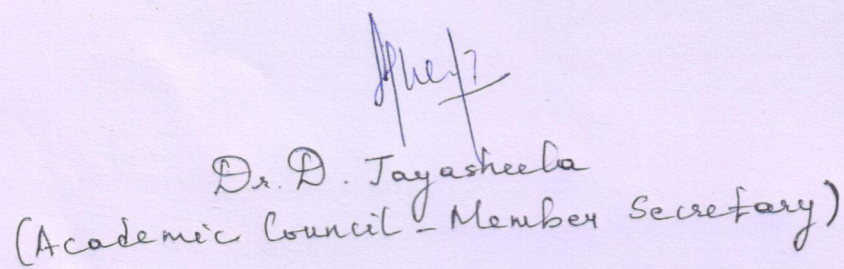 Dr. D. Jayasheela
(Academic Council - Member Secretary)